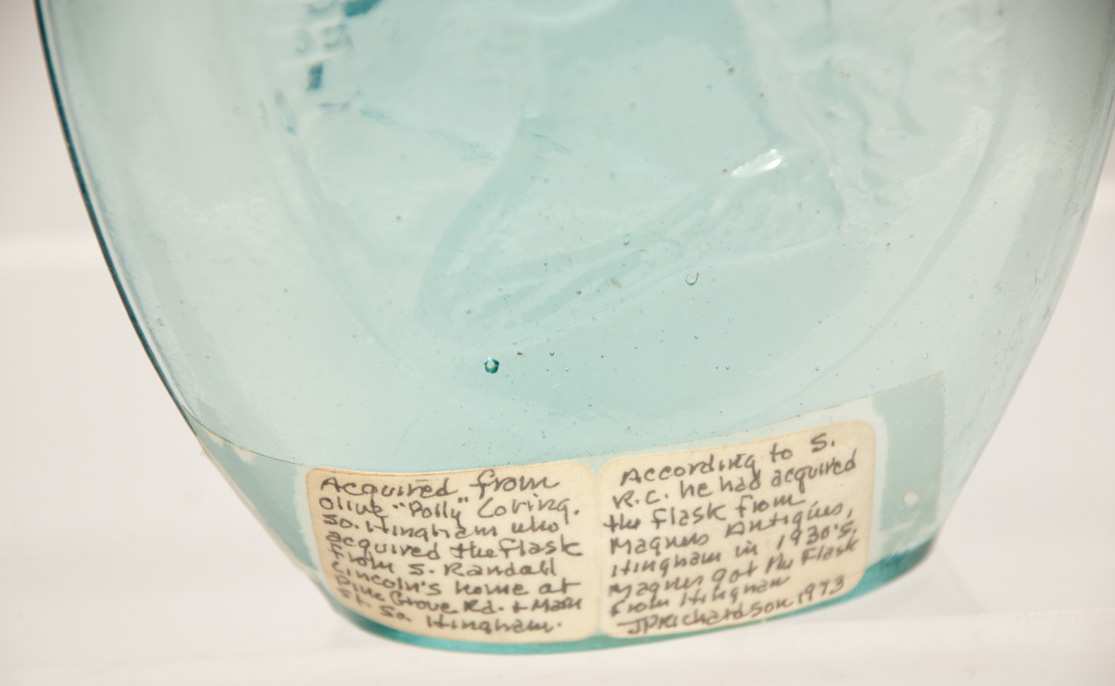 Acquired from
Olive "Polly" Loring.
So. Hingham who
acquired the flask
from S. Randall
Lincoln's home at
Pine Grove Rd. + Main
St. So. Hingham.
According to S.
R.L. he had acquired
the flask from
Magnus Antiques,
Hingham in 1930's.
Magnus got the Flask
from Hingham
JPRichardson 1973